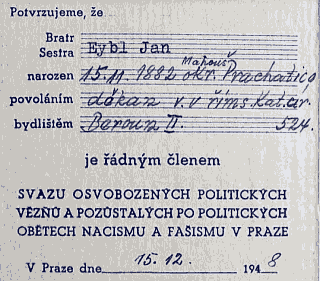 Potvrzujeme, že
Bratr
Sestra Eybl Jan
narozen 15.11. 1882 Mahouš okr. Prachatice
povoláním děkan v.v. řím. kat. cir.
bydlištěm Beroun II. 524.
je řádným členem
SVAZU OSVOBOZENÝCH POLITICKÝCH
VĚZŇŮ A POZŮSTALÝCH PO POLITICKÝCH
OBĚTECH NACISMU A FAŠISMU V PRAZE
V Praze dne 15. 12. 1948